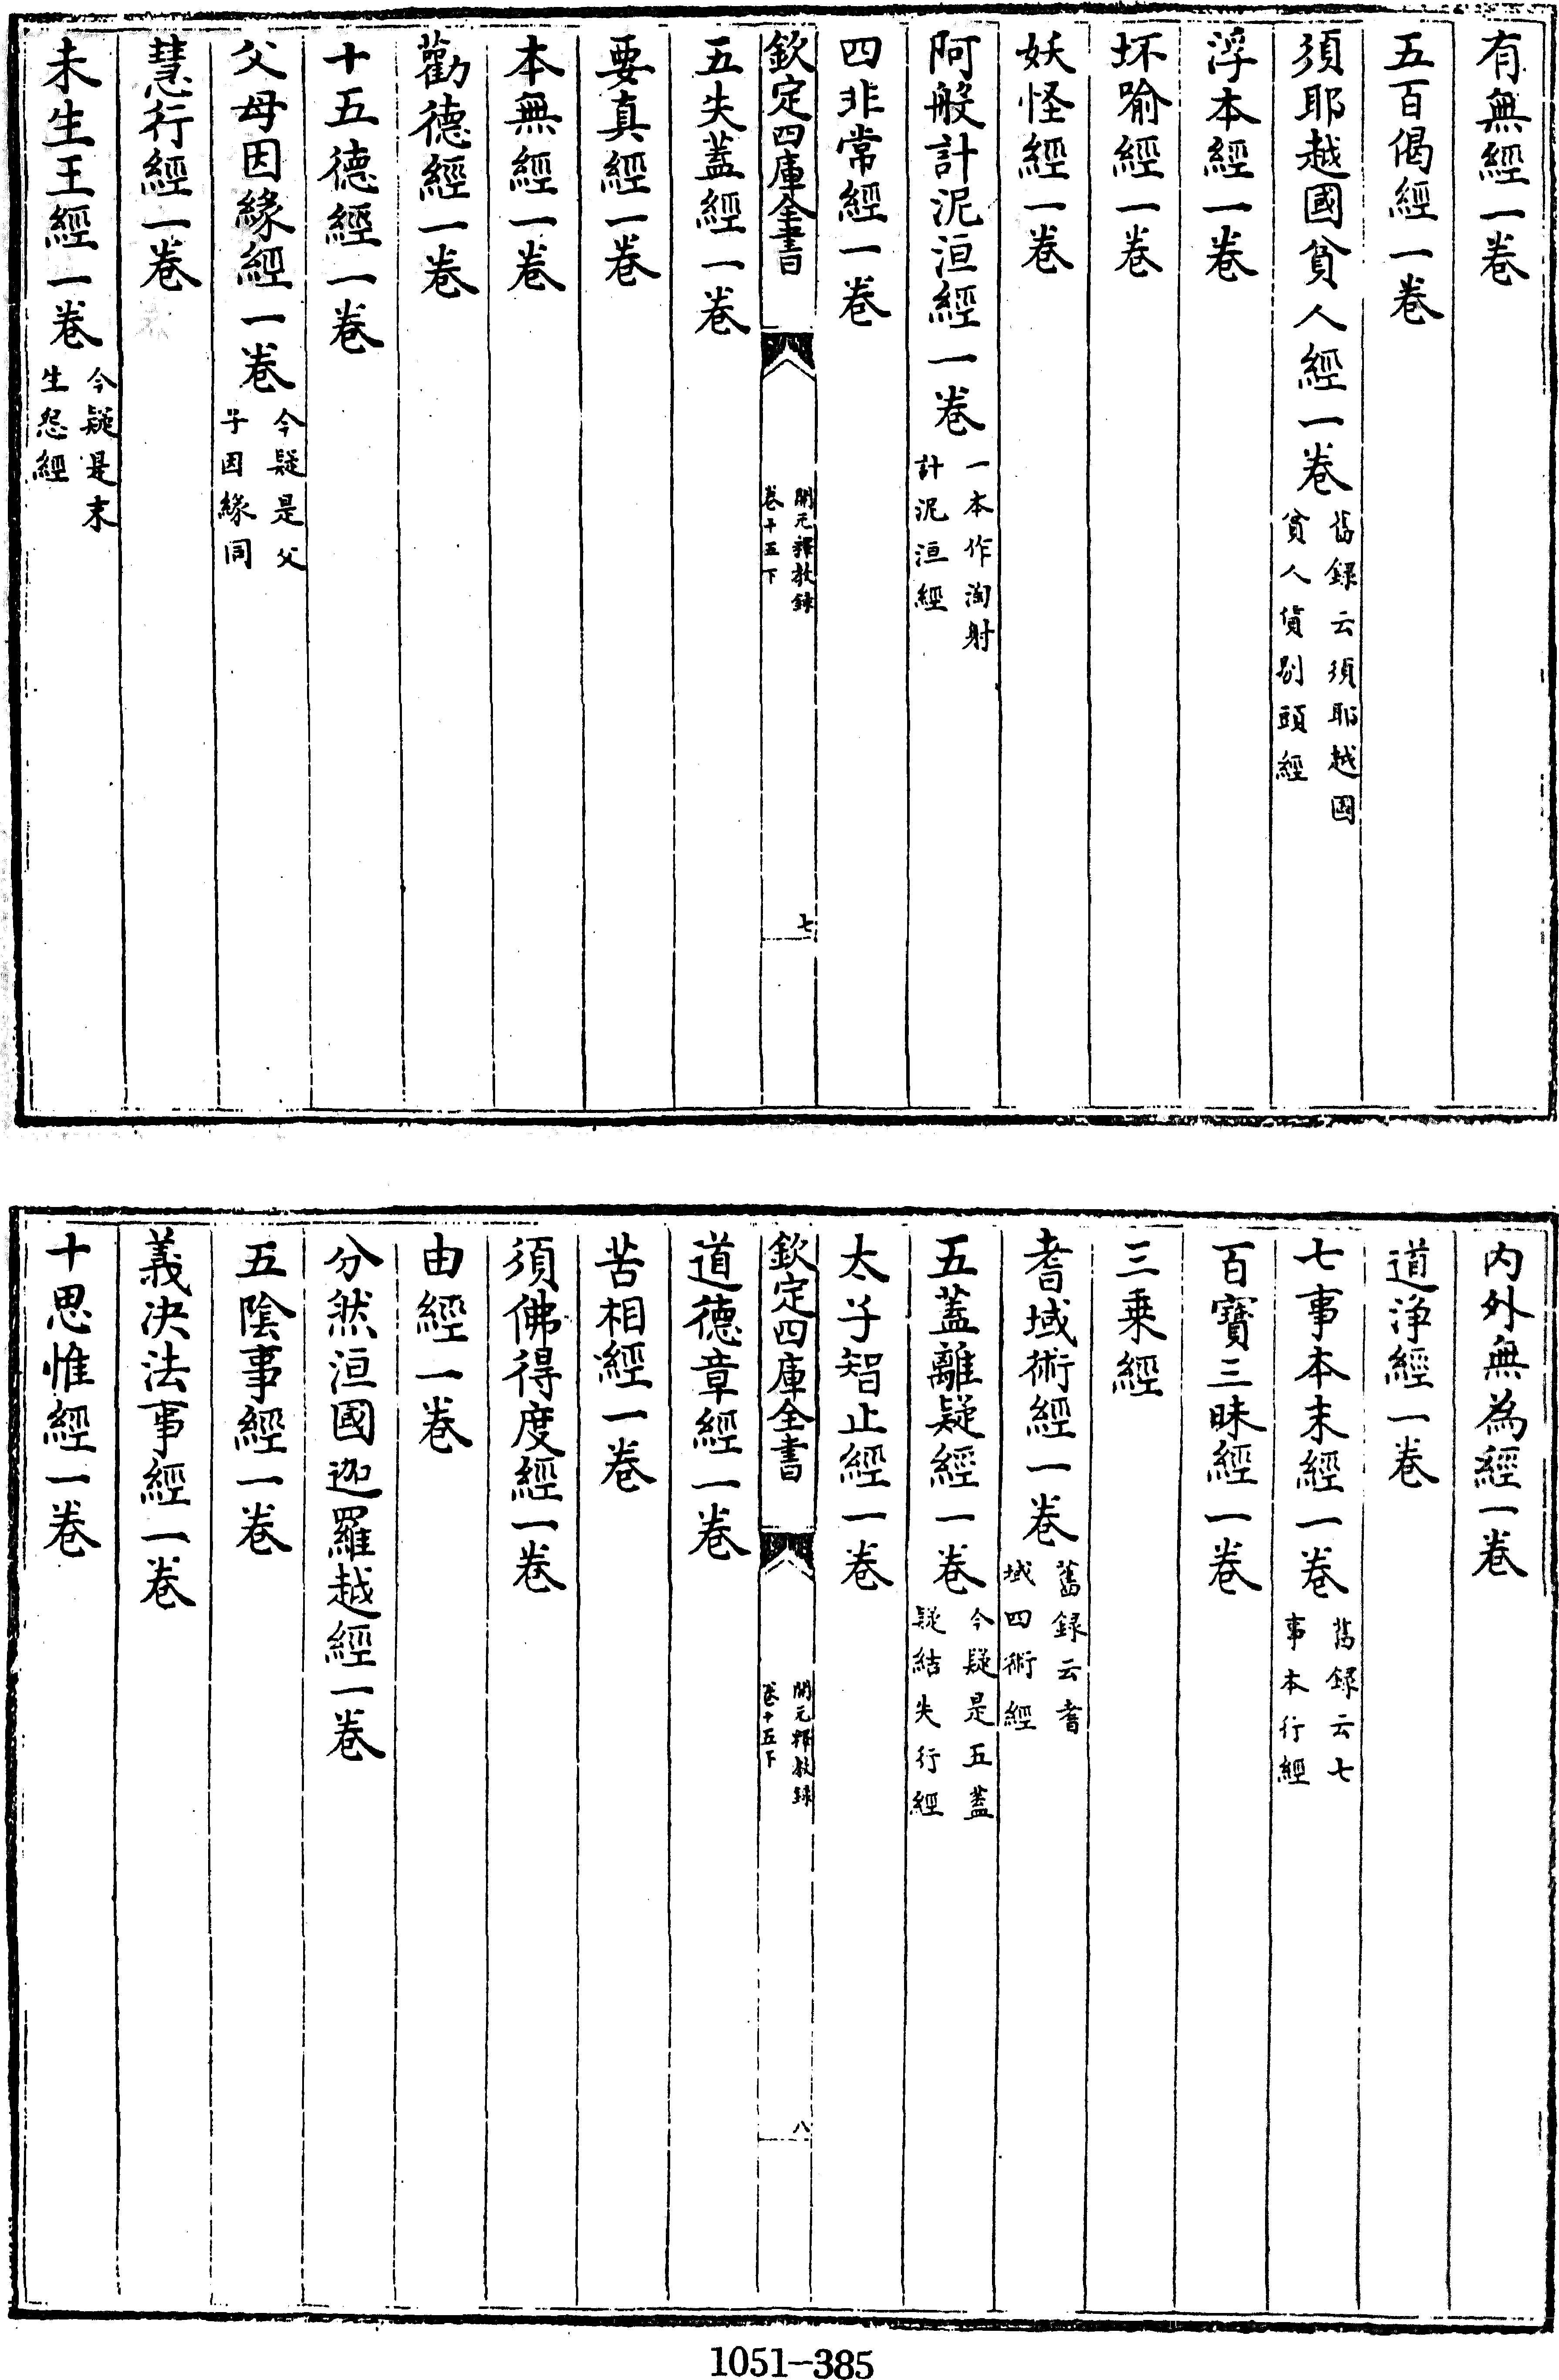 有無經一卷
五百偈經一卷
須耶越國貧人經一卷舊録云須耶越國貧人賃剔頭經
浮本經一卷
坏喻經一卷
妖怪經一卷
阿般計泥洹經一卷一本作洵射計泥洹經
四非常經一卷
欽定四庫全書 開元釋教録卷十五下 七
五失蓋經一卷
要真經一卷
本無經一卷
勸德經一卷
十五德經一卷
父母因緣經一卷今疑是父子因緣同
慧行經一卷
未生王經一卷今疑是未生怨經
内外無為經一卷
道淨經一卷
七事本末經一卷舊録云七事本行經
百寶三昧經一卷
三乗經
耆域術經一卷舊録云耆域四術經
五蓋離疑經一卷今疑是五蓋疑結失行經
太子智止經一卷
欽定四庫全書 開元釋教録卷十五下 八
道德章經一卷
苦相經一卷
須佛得度經一卷
由經一卷
分然洹國迦羅越經一卷
五陰事經一卷
義決法事經一卷
十思惟經一卷
1051-385